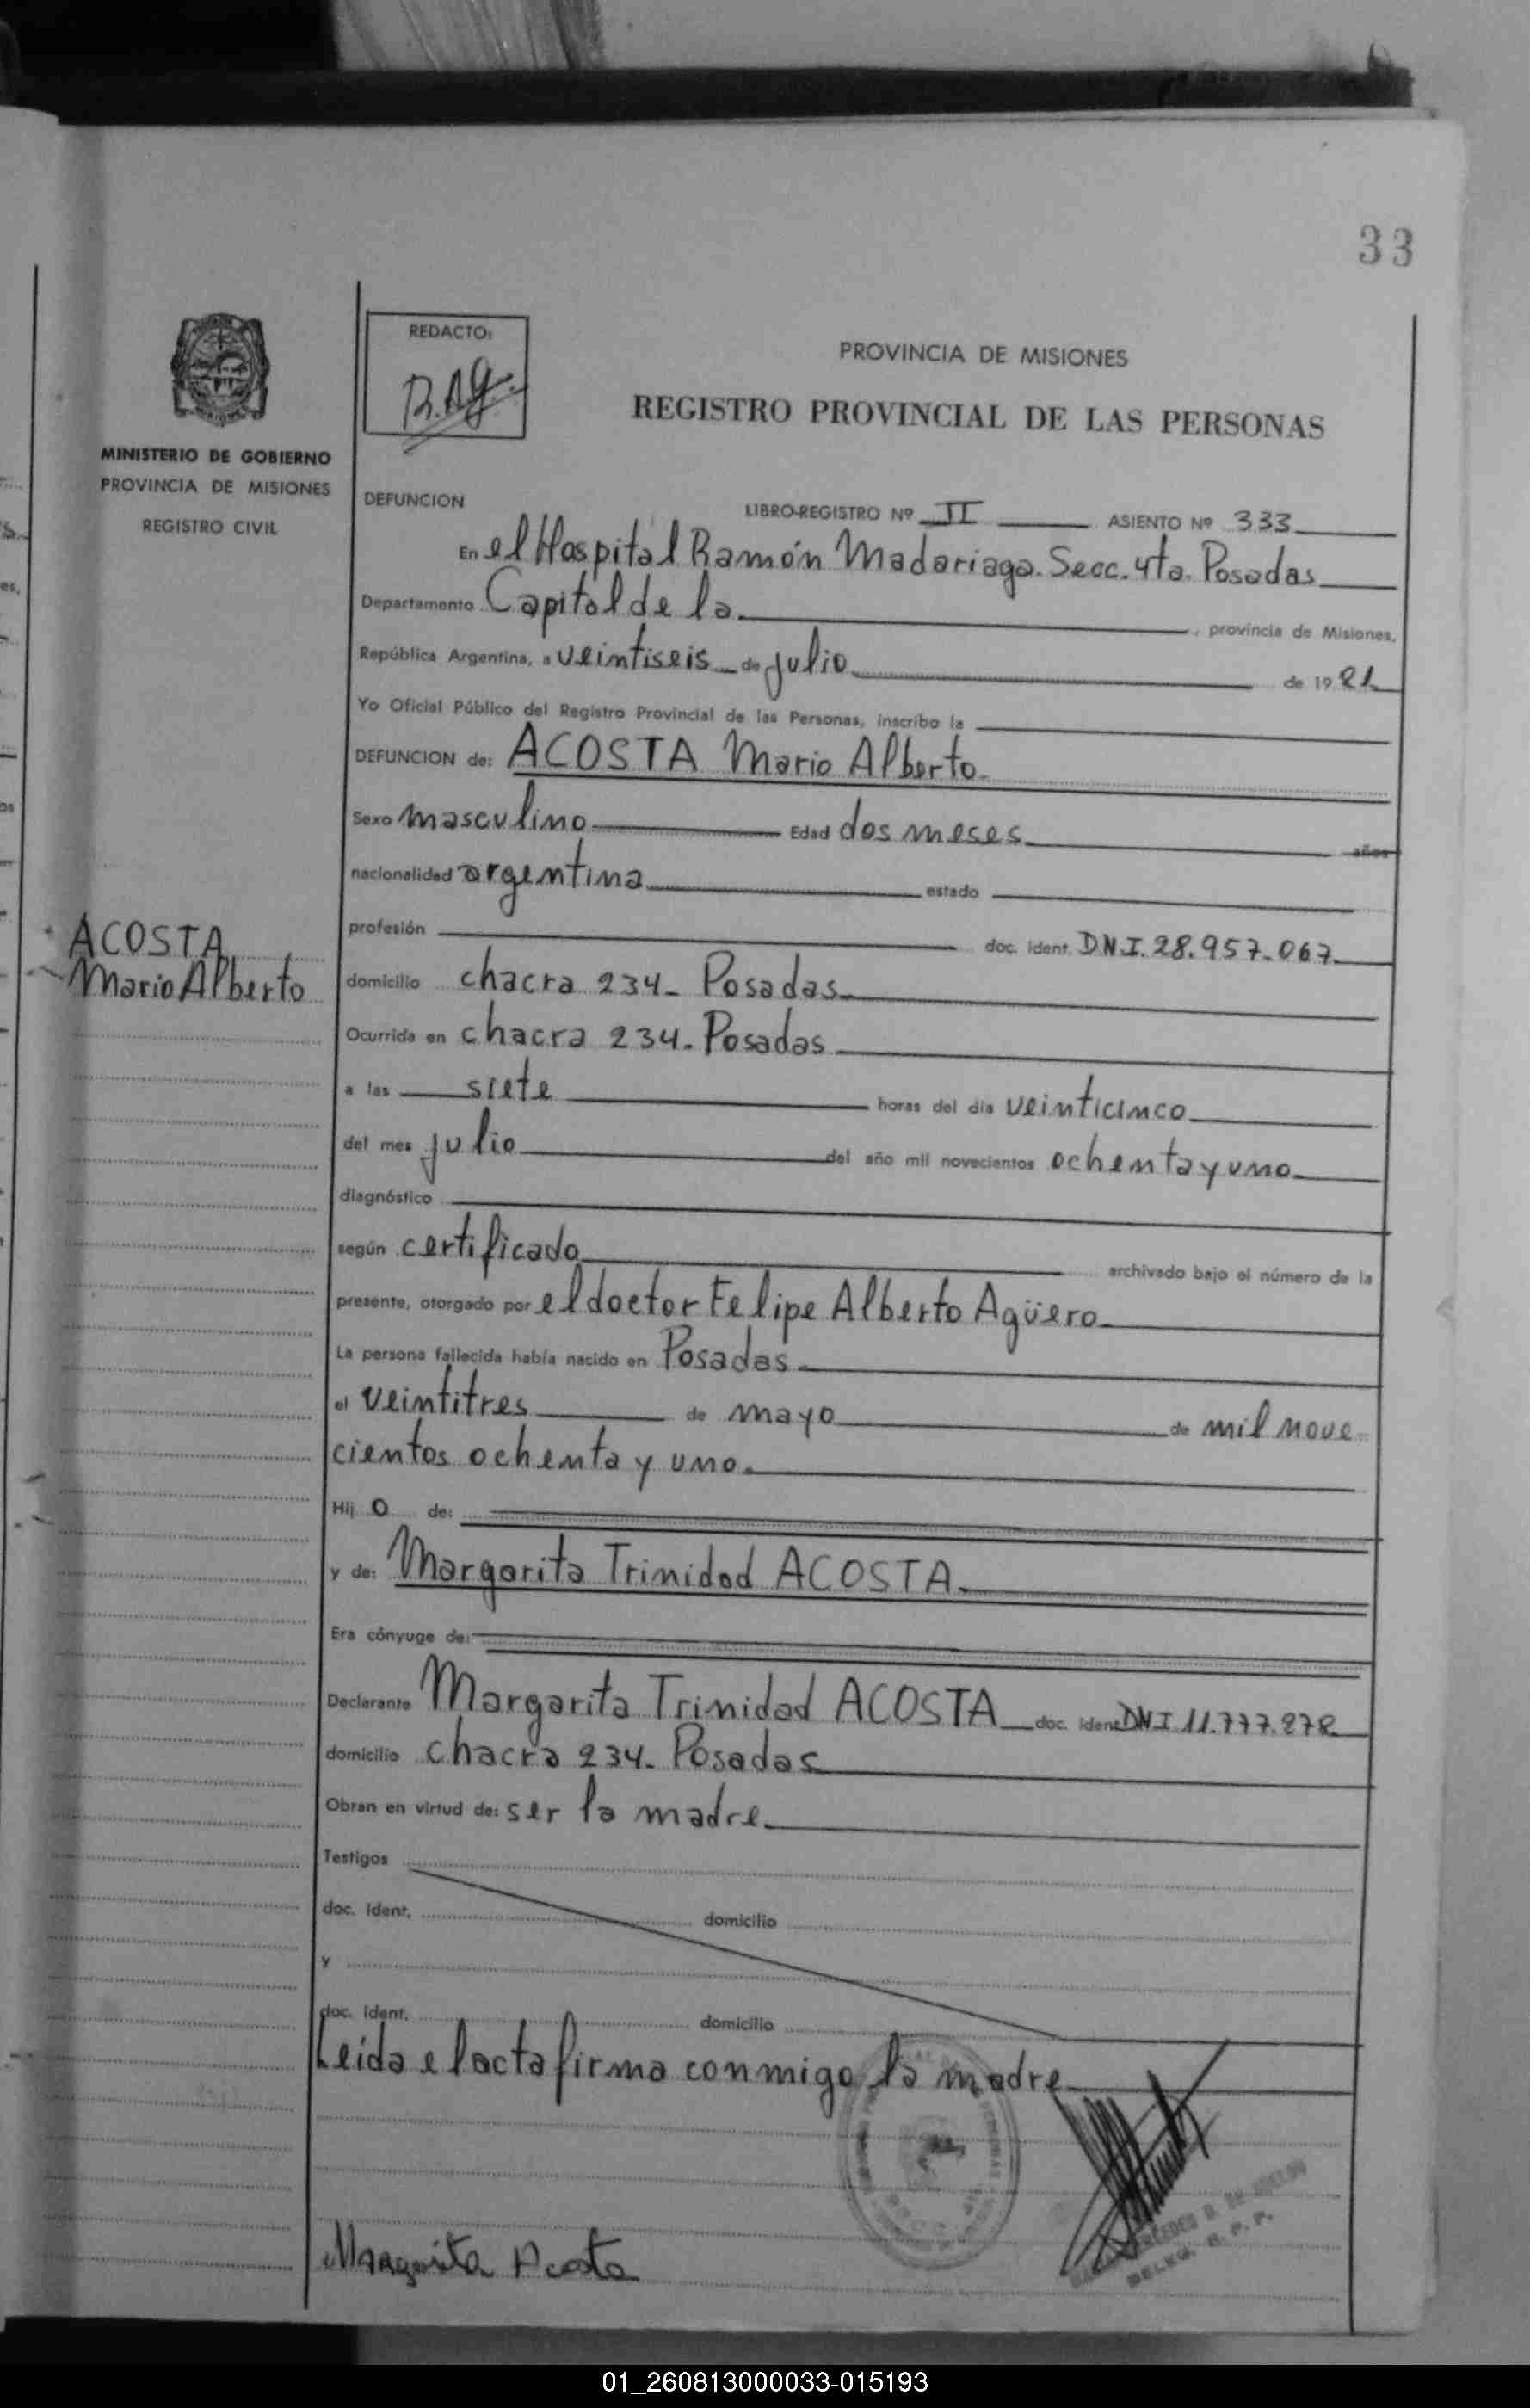 33
REDACTO:
B.Ag.
PROVINCIA DE MISIONES
REGISTRO PROVINCIAL DE LAS PERSONAS
MINISTERIO DE GOBIERNO
PROVINCIA DE MISIONES
REGISTRO CIVIL
DEFUNCION LIBRO-REGISTRO Nº II ASIENTO Nº 333
En el Hospital Ramón Madariaga. Secc. 4ta. Posadas
Departamento Capital de la , provincia de Misiones,
República Argentina, a veintiseis de julio de 19 81
Yo Oficial Público del Registro Provincial de las Personas, inscribo la
DEFUNCION de: ACOSTA Mario Alberto
Sexo masculino Edad dos meses años
nacionalidad argentina estado
profesión doc. ident. DNI. 28.957.067
ACOSTA
Mario Alberto
domicilio chacra 234- Posadas
Ocurrida en chacra 234- Posadas
a las siete horas del día veinticinco
del mes julio del año mil novecientos ochenta y uno
diagnóstico
según certificado archivado bajo el número de la
presente, otorgado por el doctor Felipe Alberto Agüero
La persona fallecida había nacido en Posadas
el veintitres de mayo de mil nove
cientos ochenta y uno.
Hij o de:
y de: Margarita Trinidad ACOSTA
Era cónyuge de:
Declarante Margarita Trinidad ACOSTA doc. ident. DNI 11.777.878
domicilio chacra 234- Posadas
Obran en virtud de: ser la madre
Testigos
doc. ident. domicilio
y
doc. ident. domicilio
Leida el acta firma conmigo la madre
Margarita Acosta
01_260813000033-015193